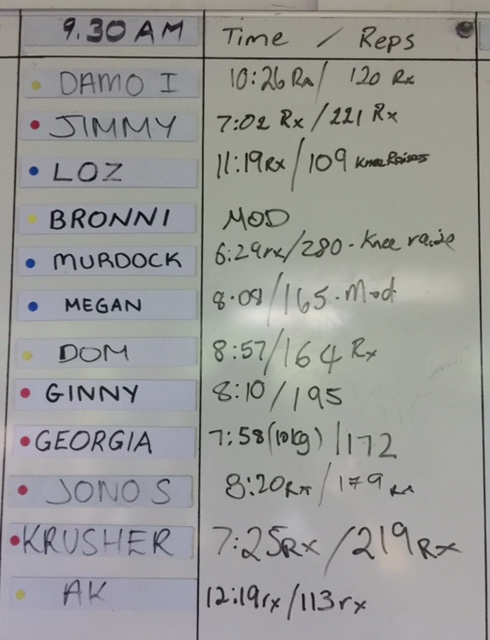 9.30 AM Time / Reps
DAMO I 10:26 Rx / 120 Rx
JIMMY 7:02 Rx / 221 Rx
LOZ 11:19Rx / 109 Knee Raises
BRONNI MOD
MURDOCK 6:29rx/280 - Knee raise
MEGAN 8:08/165 - Mod
DOM 8:57/164 Rx
GINNY 8:10/195
GEORGIA 7:58(10kg) /172
JONO S 8:20Rx / 179 Rx
KRUSHER 7:25Rx / 219 Rx
AK 12:19rx/113rx